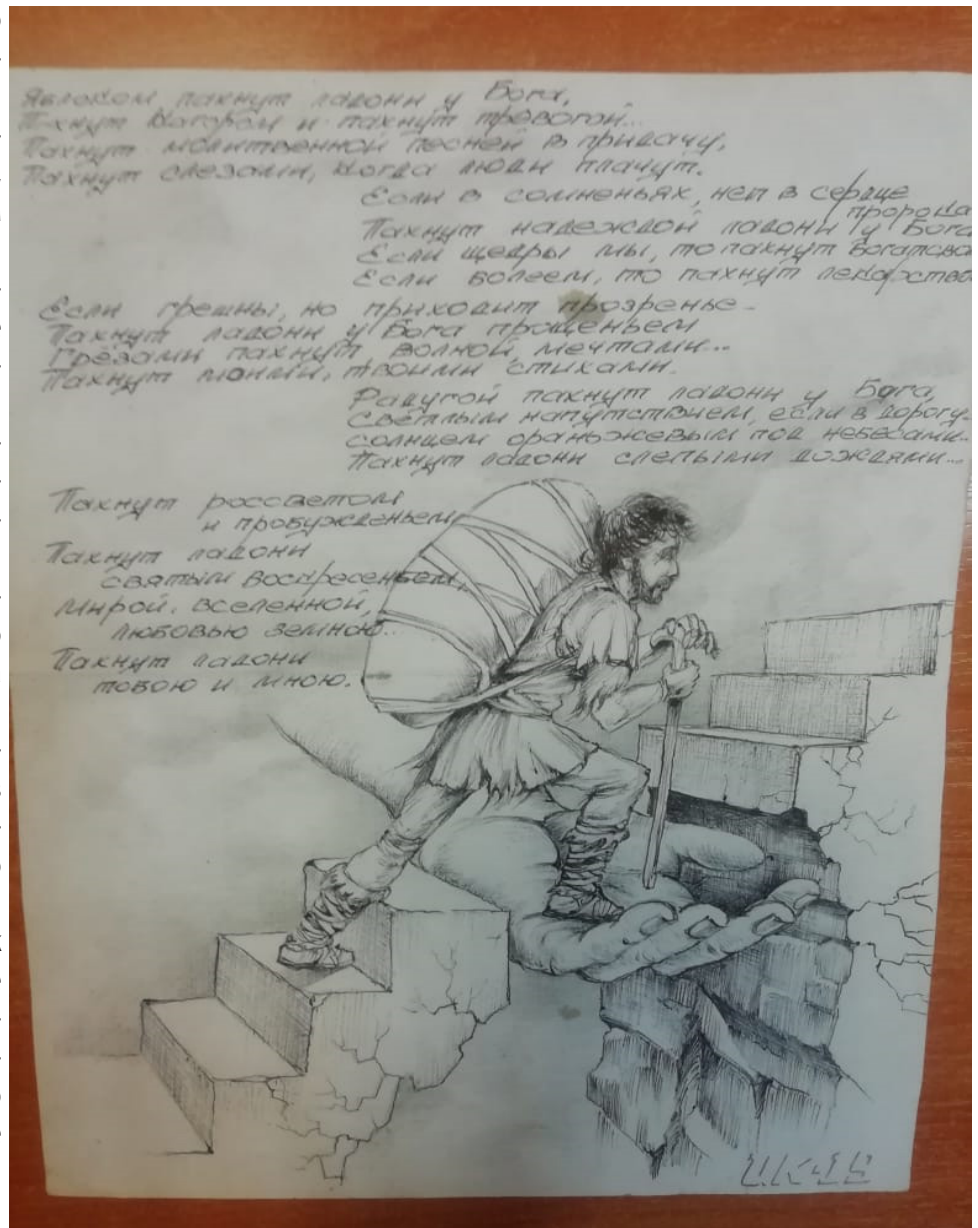 Яблоком пахнут ладони у Бога,
Пахнут Кагором и пахнут тревогой...
Пахнут молитвенной песней в придачу,
Пахнут слезами, когда люди плачут.
Если в сомненьях, нет в сердце
пророка
Пахнут надеждой ладони у Бога
Если щедры мы, то пахнут богатство
Если болеем, то пахнут лекарство
Если грешны, но приходит прозренье-
Пахнут ладони у Бога прощеньем
Грёзами пахнут, волной, мечтами...
Пахнут моими, твоими стихами.
Радугой пахнут ладони у Бога,
Светлым напутствием, если в дорогу.
Солнцем оранжевым под небесами..
Пахнут ладони слепыми дождями...
Пахнут россветом
и пробужденьем,
Пахнут ладони
святым Воскресеньем,
Мирой. вселенной,
любовью земною..
Пахнут ладони
тобою и мною.